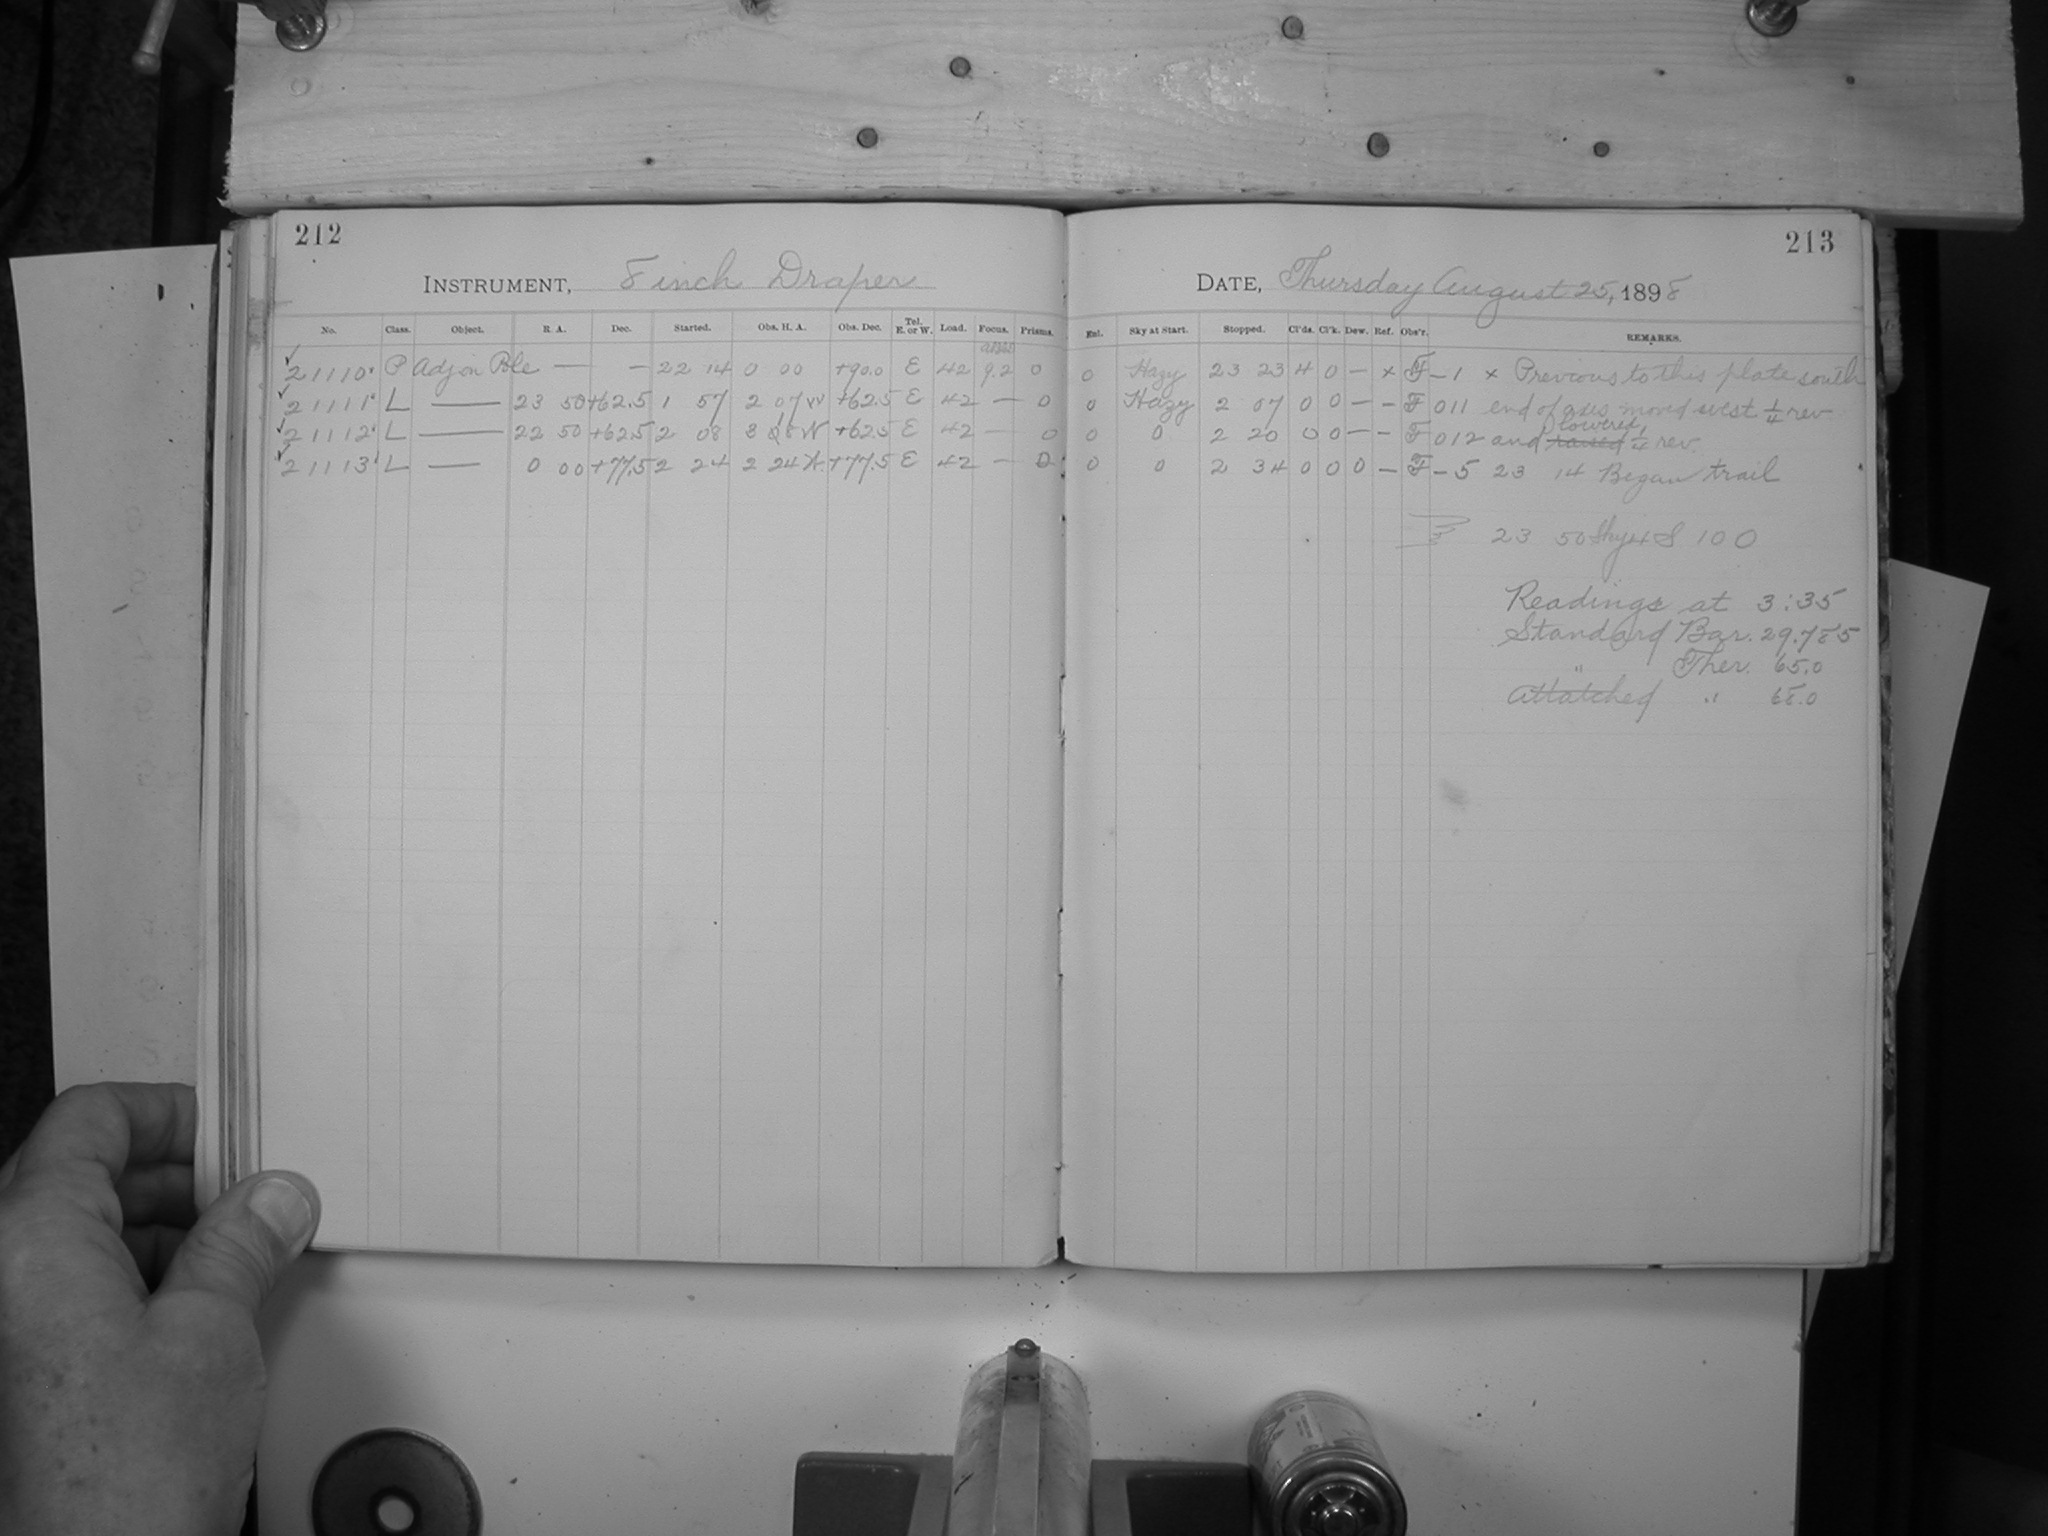 212
213
INSTRUMENT, 8 inch Draper
DATE, Thursday August 25, 1898
No. Class. Object. R. A. Dec. Started. Obs. H. A. Obs. Dec. Tel. E. or W. Load. Focus. Prisms. Enl. Sky at Start. Stopped. Cl'ds. Cl'k. Dew. Ref. Obs'r. REMARKS.
21110 P Adj on Pole — — 22 14 0 00 +90.0 E 42 9.2 0 0 Hazy 23 23 4 0 — x F – 1 x Previous to this plate south
21111 L — 23 50 +62.5 1 57 2 07 W +62.5 E 42 — 0 0 Hazy 2 07 0 0 — – F 011 end of axis moved west 1/4 rev
lowered
21112 L — 22 50 +62.5 2 08 3 18 W +62.5 E 42 — 0 0 0 2 20 0 0 — – F 012 and raised 1/4 rev.
21113 L — 0 00 +77.5 2 24 2 24 W +77.5 E 42 — 0 0 0 2 34 0 0 0 – F – 5 23 14 Began trail
23 50 Sky 4 S 10 0
Readings at 3:35
Standard Bar. 29.785
" Ther. 65.0
Attatched " 68.0